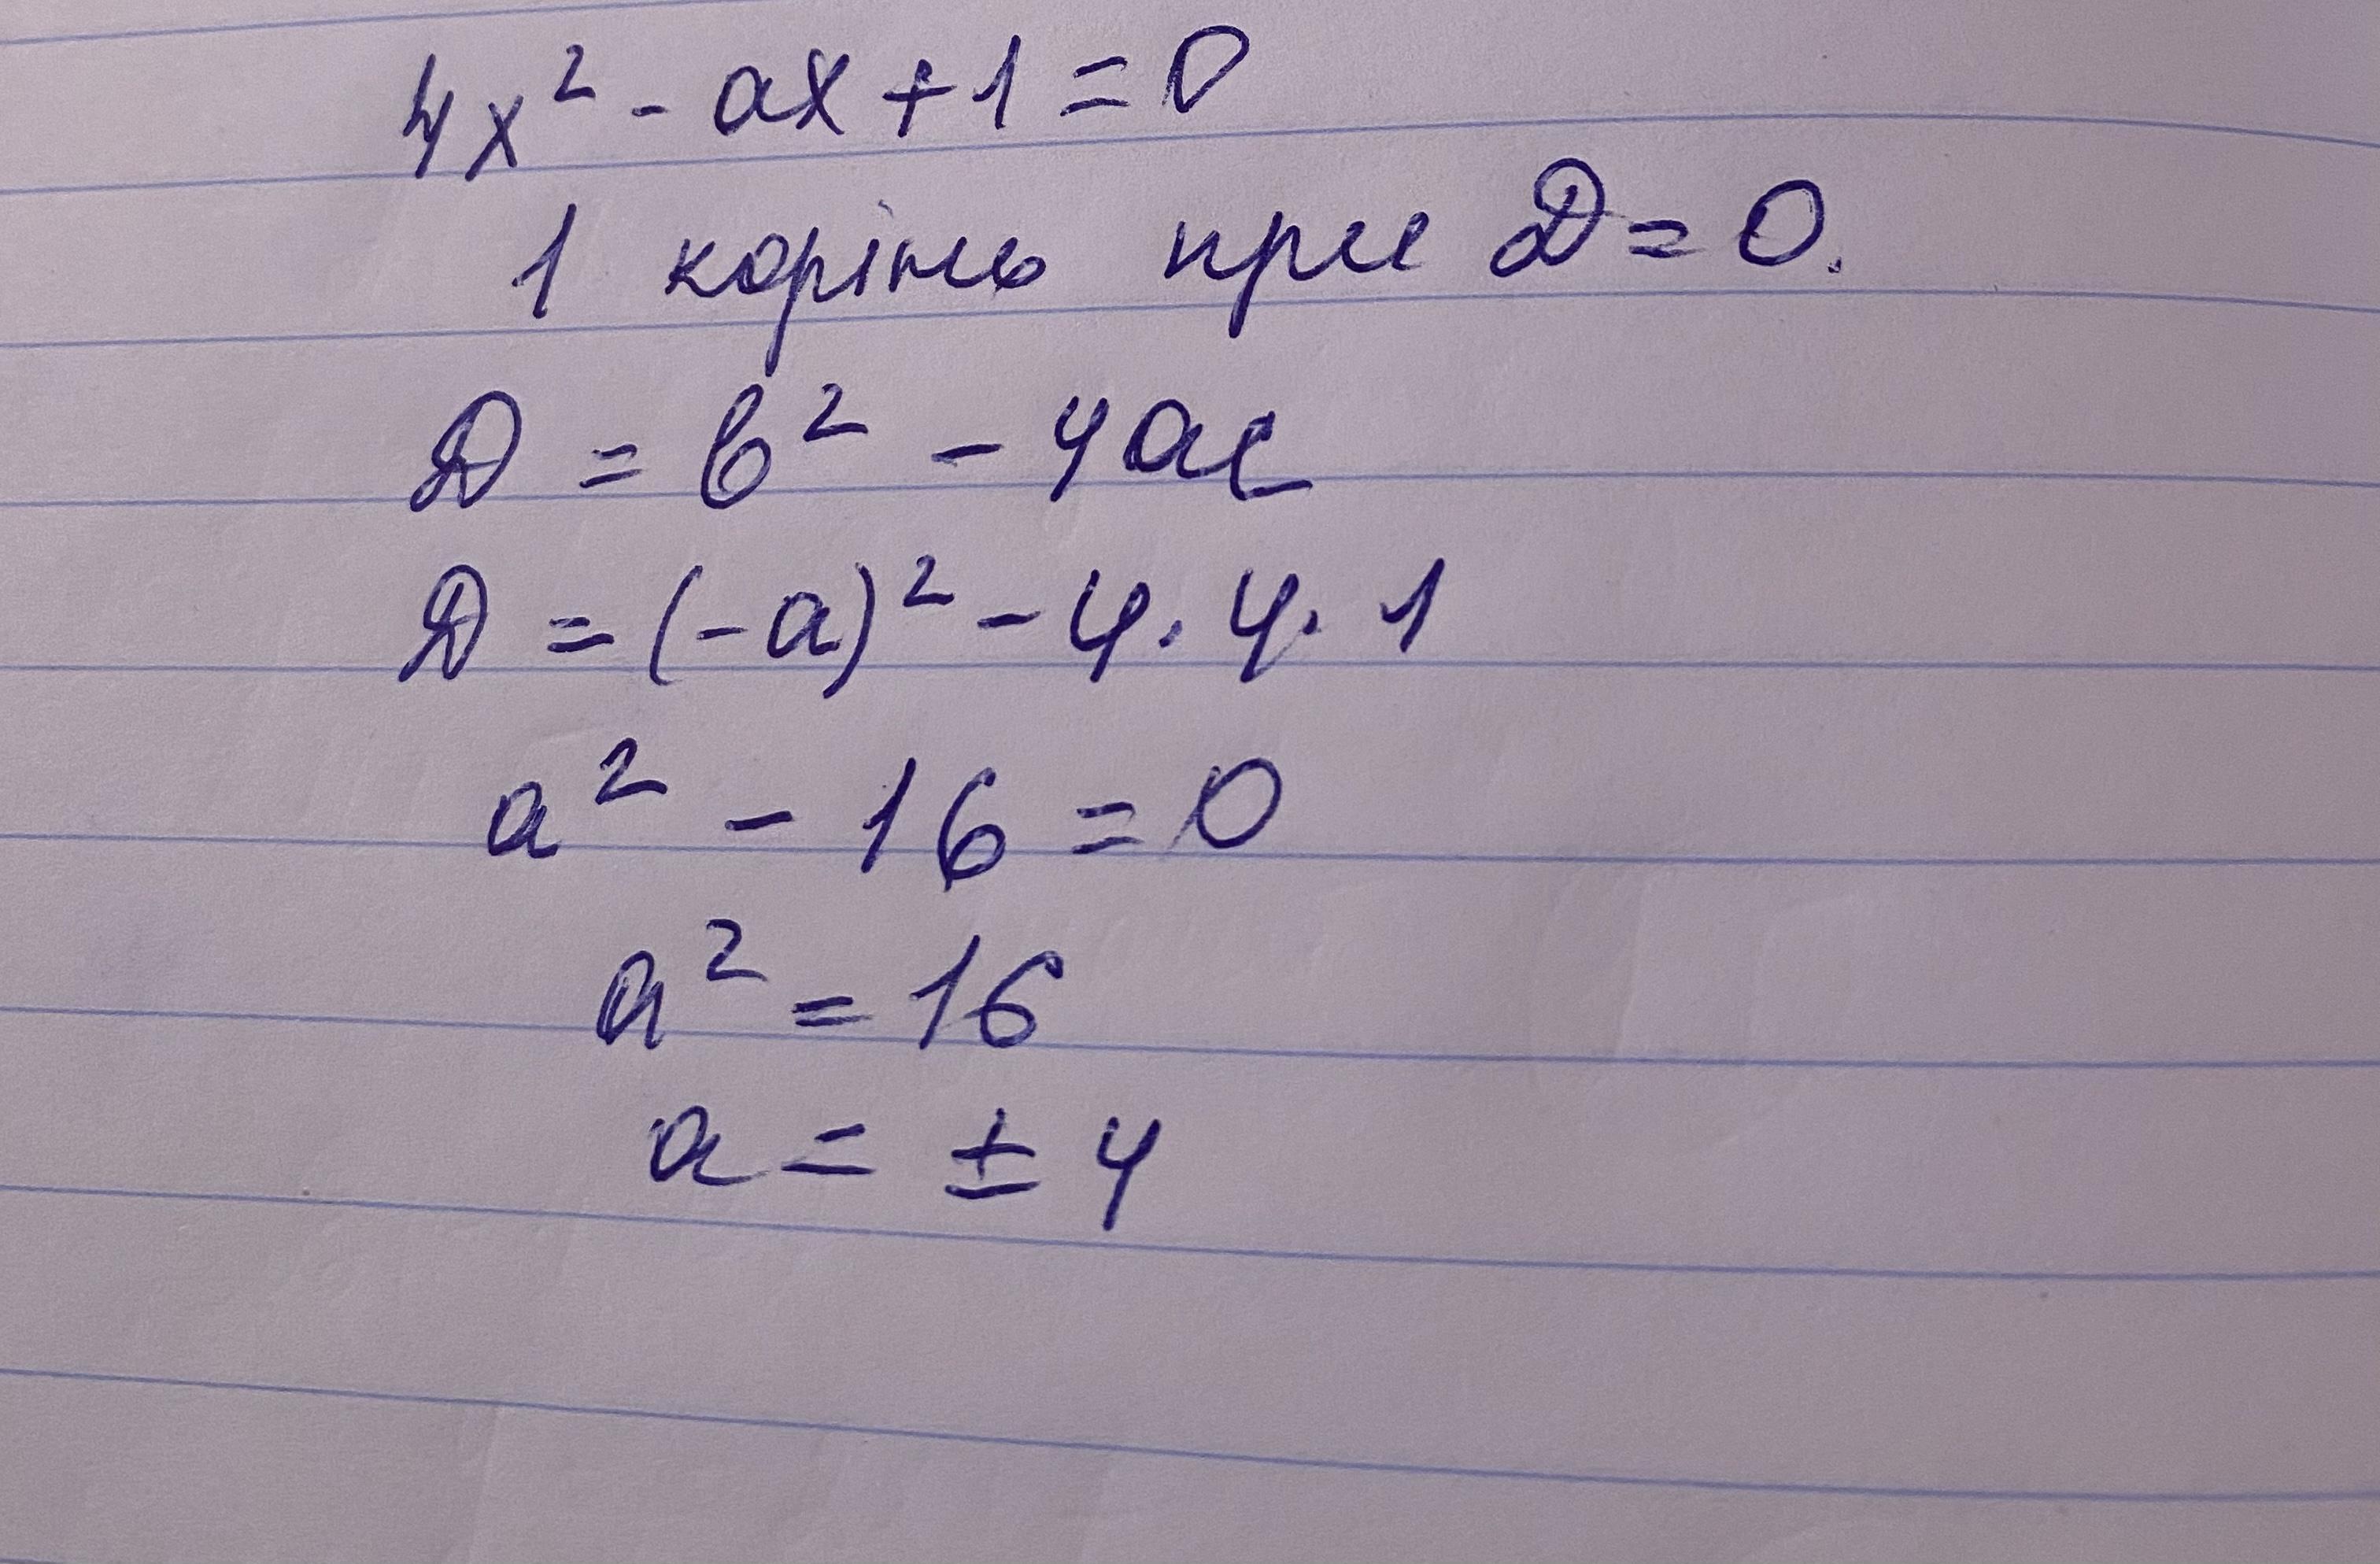 4x² - ax + 1 = 0
1 корінь при D = 0.
D = b² - 4ac
D = (-a)² - 4 · 4 · 1
a² - 16 = 0
a² = 16
a = ± 4